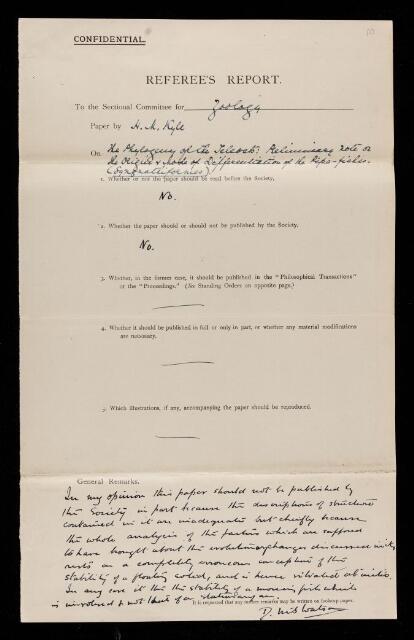 CONFIDENTIAL.
REFEREE'S REPORT.
To the Sectional Committee for Zoology
Paper by H. M. Kyle
On The Phylogeny of the Teleosts: Preliminary note on
the Origin & mode of Differentiation of the Pipe-fishes.
(Syngnathiformes).
1. Whether or not the paper should be read before the Society,
No.
2. Whether the paper should or should not be published by the Society.
No.
3. Whether, in the former case, it should be published in the "Philosophical Transactions"
or the "Proceedings." (See Standing Orders on opposite page.)
4. Whether it should be published in full or only in part, or whether any material modifications
are necessary.
5. Which illustrations, if any, accompanying the paper should be reproduced.
General Remarks.
In my opinion this paper should not be published by
the Society in part because the descriptions of structure
contained in it are inadequate but chiefly because
the whole analysis of the factors which are supposed
to have brought about the evolutionary changes discussed in it,
rests on a completely erroneous conception of the
stability of a floating solid, and is hence vitiated ab initio.
In any case it is the stability of a moving fish which
is involved & not that of a stationary one.
It is requested that any further remarks may be written on foolscap paper.
D. M. S. Watson